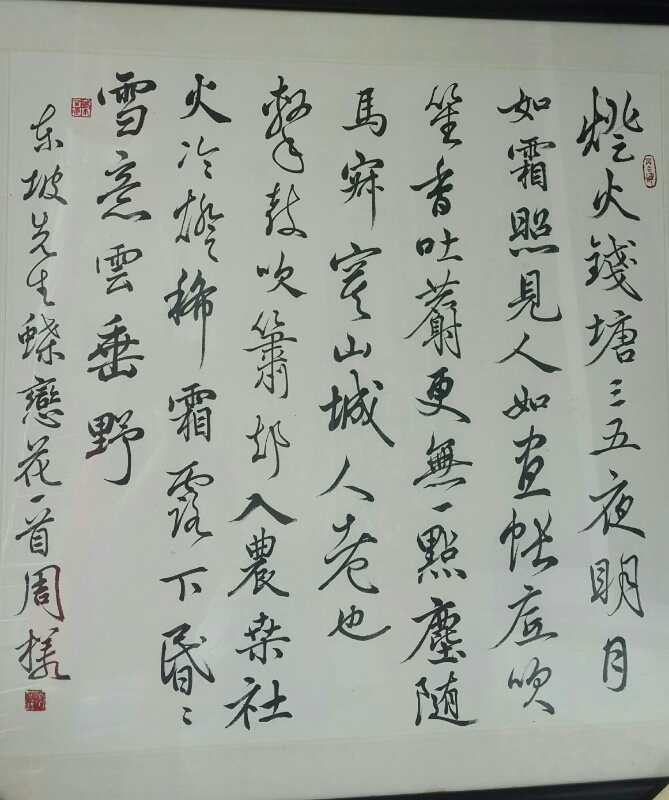 燈火錢塘三五夜明月
如霜照見人如畫帳底吹
笙香吐麝更無一點塵隨
馬寂寞山城人老也
擊鼓吹簫却入農桑社
火冷燈稀霜露下昏〻
雪意雲垂野
东坡先生蝶戀花一首周樣